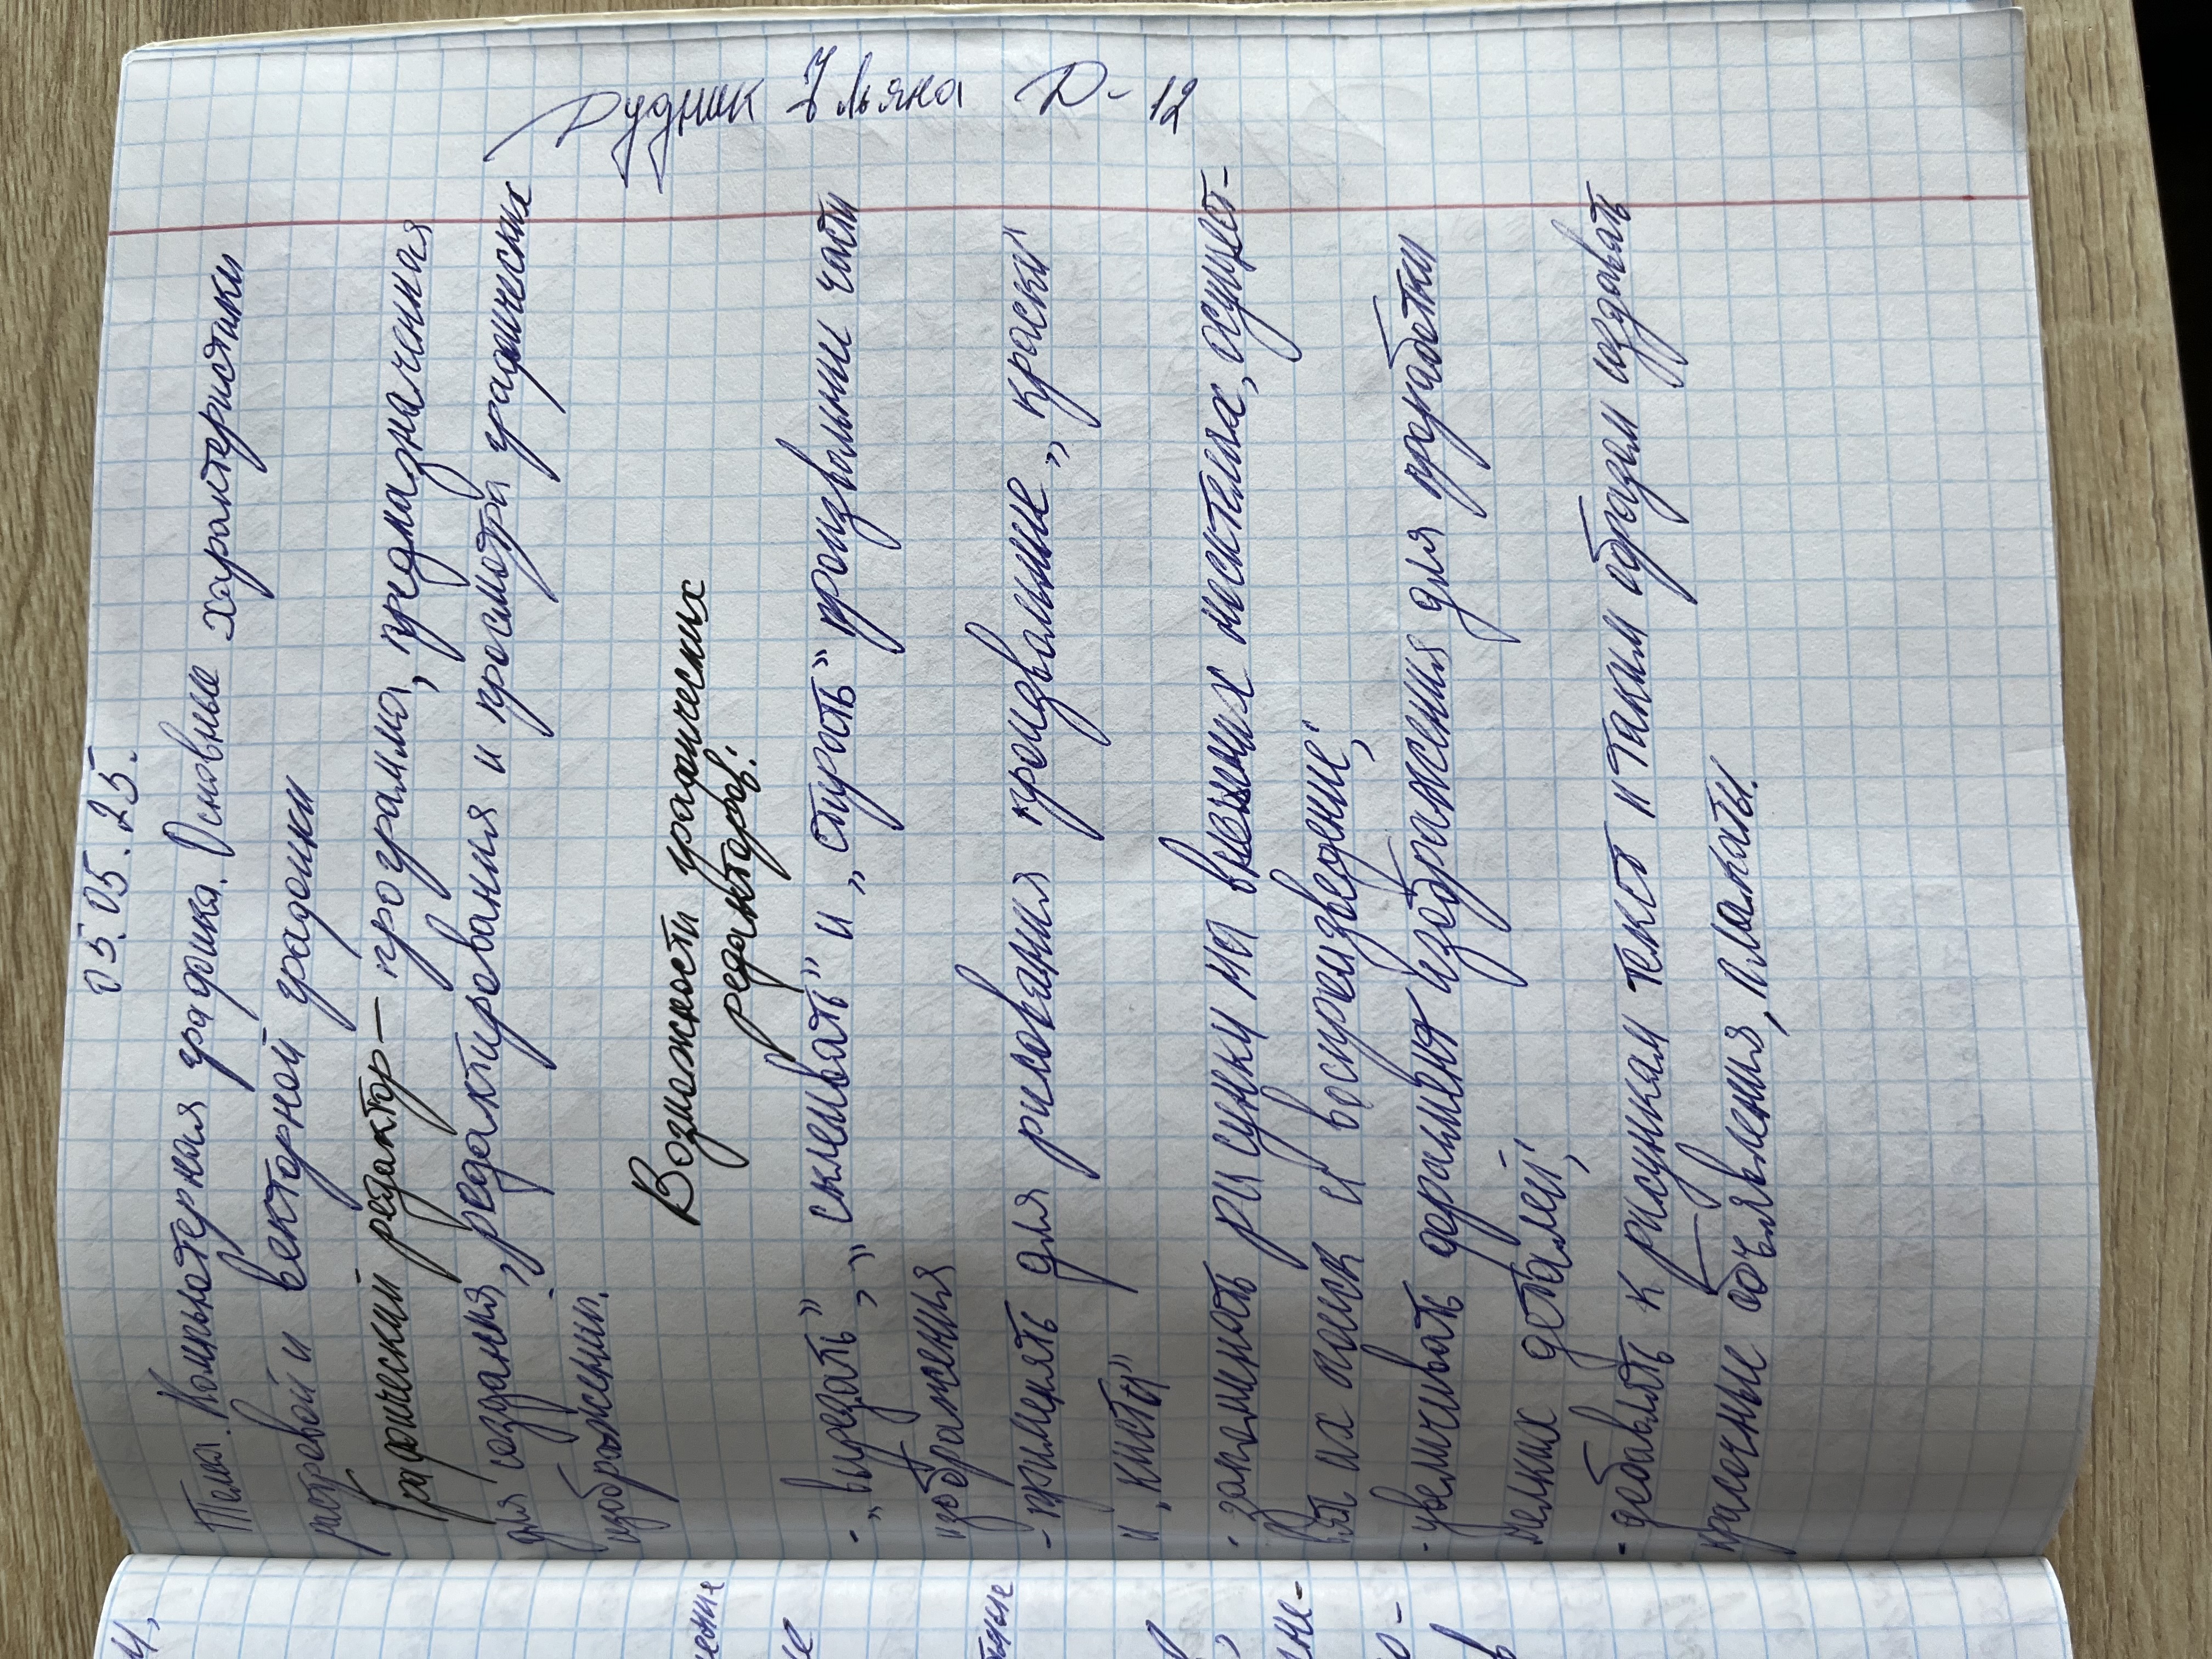 Дудник Ульяна Д-12
05.05.25.
Тема. Компьютерная графика. Основные характеристики
растровой и векторной графики
Графический редактор – программа, предназначенная
для создания, редактирования и просмотра графических
изображений.
Возможности графических
редакторов:
- „вырезать", „склеивать" и „стирать" произвольные части
изображения
- применять для рисования произвольные „краски"
и „кисти"
- запоминать рисунки на внешних носителях, осущест-
влять их поиск и воспроизведение;
- увеличивать фрагмент изображения для проработки
мелких деталей;
- добавлять к рисункам текст и таким образом создавать
красочные объявления, плакаты.